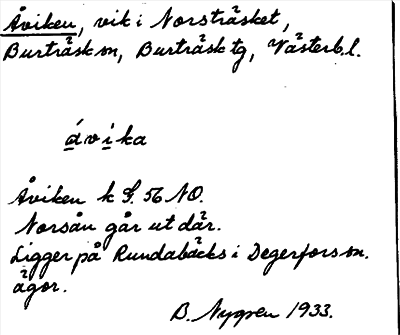 Åviken, vik i Norsträsket,
Burträsk sn, Burträsk tg, Västerb.l.
ávika
Åviken k G. 56 NO.
Norsån går ut där.
Ligger på Rundabäcks i Degerfors sn.
ägor.
B. Nygren 1933.